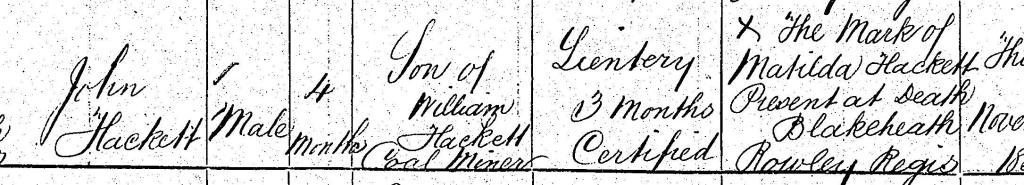 John
Hackett
Male
4
Months
Son of
William
Hackett
Coal Miner
Lientery
3 Months
Certified
X The Mark of
Matilda Hackett
Present at Death
Blakeheath
Rowley Regis
Nove
18